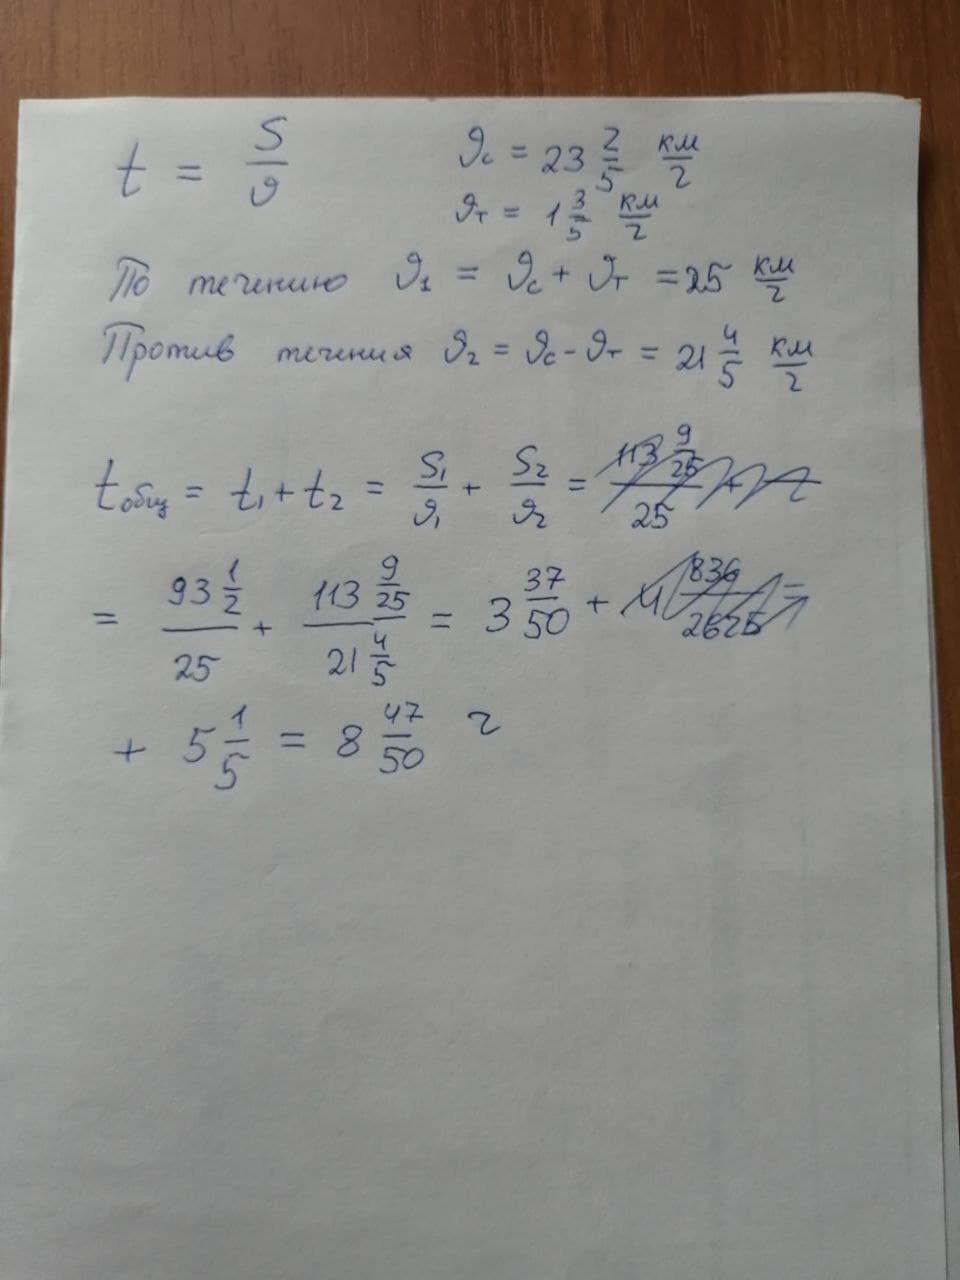 t = S/ϑ
ϑс = 23 2/5 км/г
ϑт = 1 3/5 км/г
По течению ϑ1 = ϑс + ϑт = 25 км/г
Против течения ϑ2 = ϑс - ϑт = 21 4/5 км/г
tобщ = t1 + t2 = S1/ϑ1 + S2/ϑ2 =
= 93 1/2 / 25 + 113 9/25 / 21 4/5 = 3 37/50 +
+ 5 1/5 = 8 47/50 г